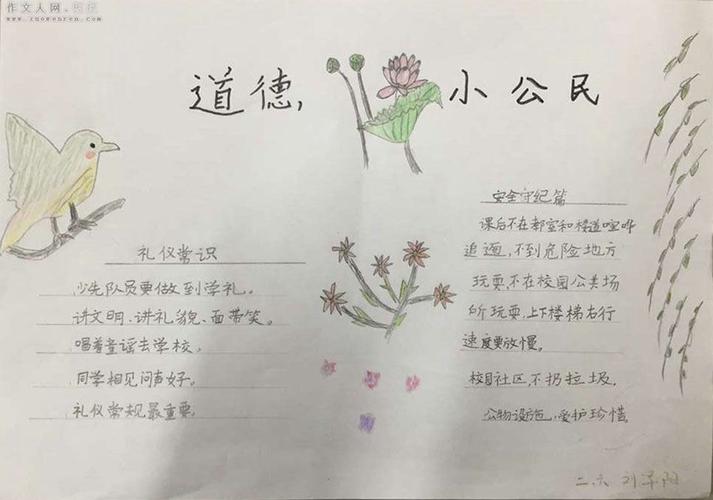 作文人网
www.zuowenren.com
道德, 小公民
礼仪常识
少先队员要做到学礼。
讲文明、讲礼貌、面带笑。
唱着童谣去学校。
同学相见问声好。
礼仪常规最重要。
安全守纪篇
课后不在教室和楼道喧哗
追逦,不到危险地方
玩耍,不在校园公共场
所玩耍,上下楼梯右行
速度要放慢。
校园社区,不扔垃圾.
公物设施,爱护珍惜。
二.六 刘